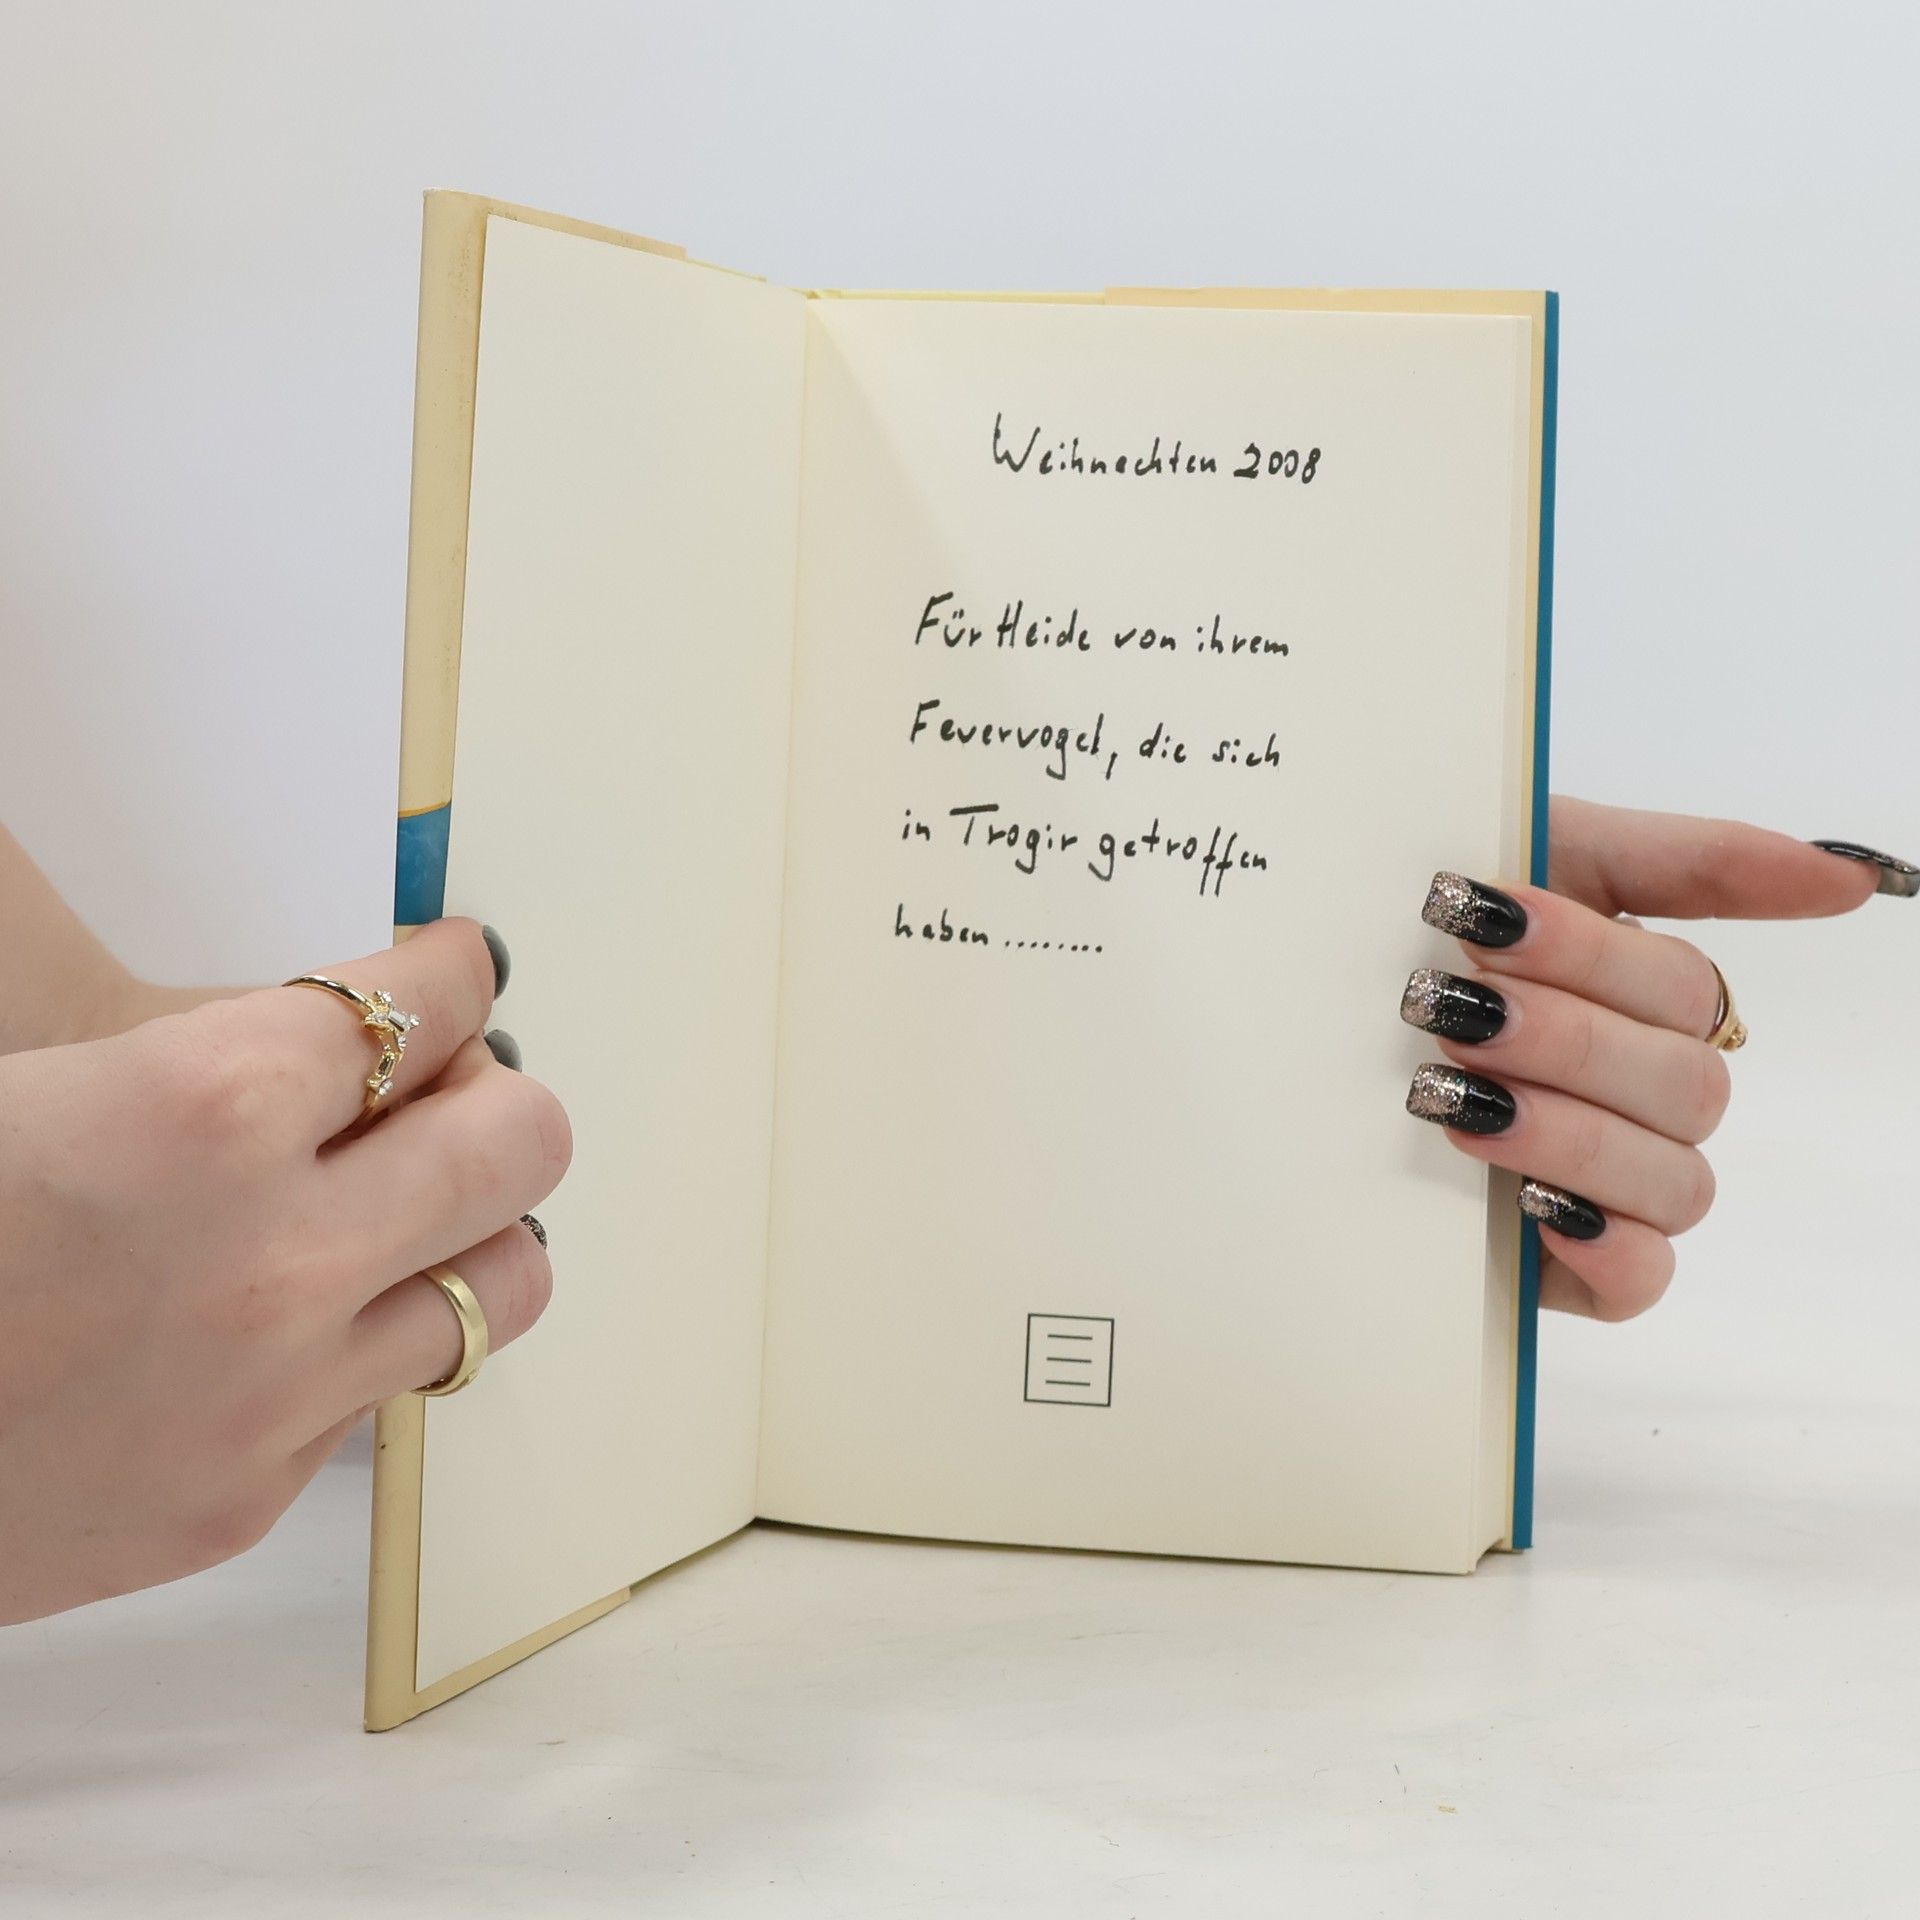 Weihnachten 2008
Für Heide von ihrem
Feuervogel, die sich
in Trogir getroffen
haben ........